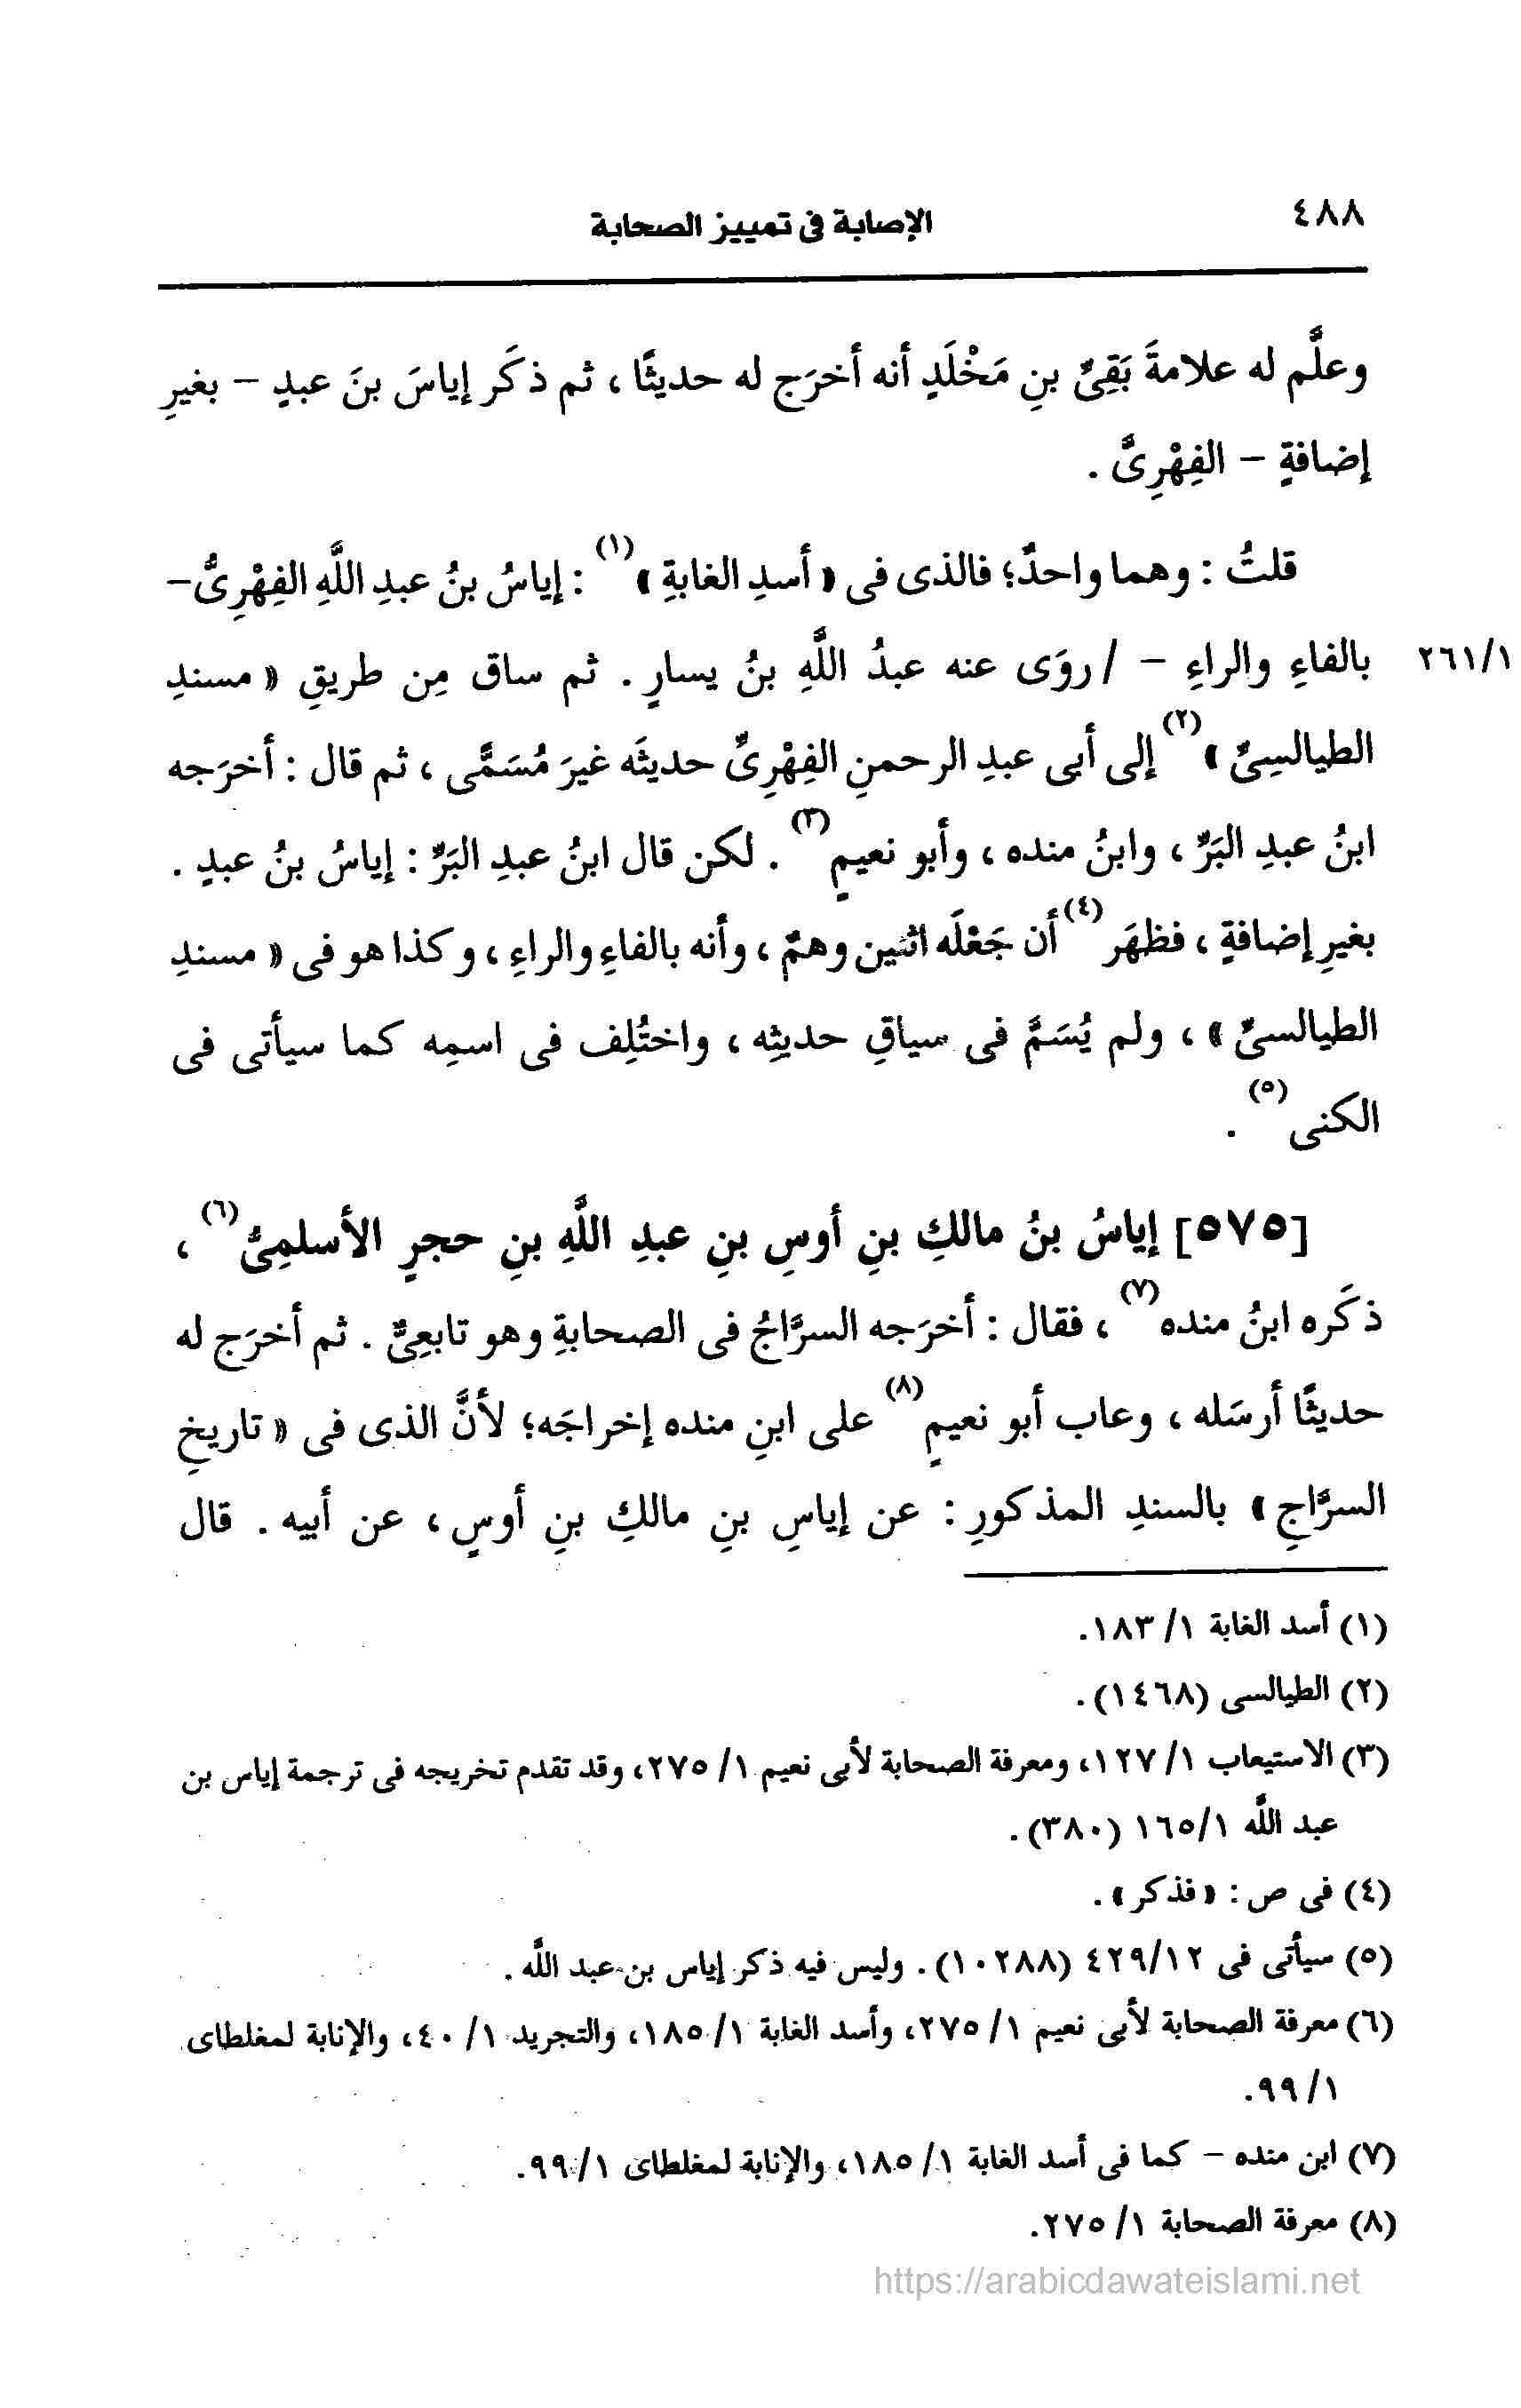 ٤٨٨
الإصابة فى تمييز الصحابة
وعلَّم له علامةَ بَقِىِّ بنِ مَخْلَدٍ أنه أخرَج له حديثًا ، ثم ذكَر إياسَ بنَ عبدٍ – بغيرِ
إضافةٍ – الفِهْرِىَّ .
قلتُ : وهما واحدٌ؛ فالذى فى « أسدِ الغابةِ »(١) : إياسُ بنُ عبدِ اللَّهِ الفِهْرِىُّ–
٢٦١/١ بالفاءِ والراءِ – / روَى عنه عبدُ اللَّهِ بنُ يسارٍ . ثم ساق مِن طريقِ « مسندِ
الطيالسِىِّ »(٢) إلى أبى عبدِ الرحمنِ الفِهْرِىِّ حديثَه غيرَ مُسَمًّى ، ثم قال : أخرَجه
ابنُ عبدِ البَرِّ ، وابنُ منده ، وأبو نعيمٍ(٣) . لكن قال ابنُ عبدِ البَرِّ : إياسُ بنُ عبدٍ .
بغيرِ إضافةٍ ، فظهَر(٤) أن جَعْلَه اثنين وهمٌ ، وأنه بالفاءِ والراءِ ، وكذا هو فى « مسندِ
الطيالسىِّ » ، ولم يُسَمَّ فى سياقِ حديثِه ، واختُلِف فى اسمِه كما سيأتى فى
الكنى(٥) .
[٥٧٥] إياسُ بنُ مالكِ بنِ أوسِ بنِ عبدِ اللَّهِ بنِ حجرٍ الأسلمِىُّ(٦) ،
ذكَره ابنُ منده(٧) ، فقال : أخرَجه السرَّاجُ فى الصحابةِ وهو تابعِىٌّ . ثم أخرَج له
حديثًا أرسَله ، وعاب أبو نعيمٍ(٨) على ابنِ منده إخراجَه؛ لأنَّ الذى فى « تاريخِ
السرَّاجِ » بالسندِ المذكورِ : عن إياسِ بنِ مالكِ بنِ أوسٍ ، عن أبيه . قال
(١) أسد الغابة ١/ ١٨٣.
(٢) الطيالسى (١٤٦٨) .
(٣) الاستيعاب ١/ ١٢٧، ومعرفة الصحابة لأبى نعيم ١/ ٢٧٥، وقد تقدم تخريجه فى ترجمة إياس بن
عبد اللَّه ١/‏١٦٥ (٣٨٠) .
(٤) فى ص : « فذكر » .
(٥) سيأتى فى ١٢/‏٤٢٩ (١٠٢٨٨) . وليس فيه ذكر إياس بن عبد اللَّه .
(٦) معرفة الصحابة لأبى نعيم ١/ ٢٧٥، وأسد الغابة ١/ ١٨٥، والتجريد ١/ ٤٠، والإنابة لمغلطاى
١/ ٩٩.
(٧) ابن منده – كما فى أسد الغابة ١/ ١٨٥، والإنابة لمغلطاى ١/ ٩٩.
(٨) معرفة الصحابة ١/ ٢٧٥.
https://arabicdawateislami.net